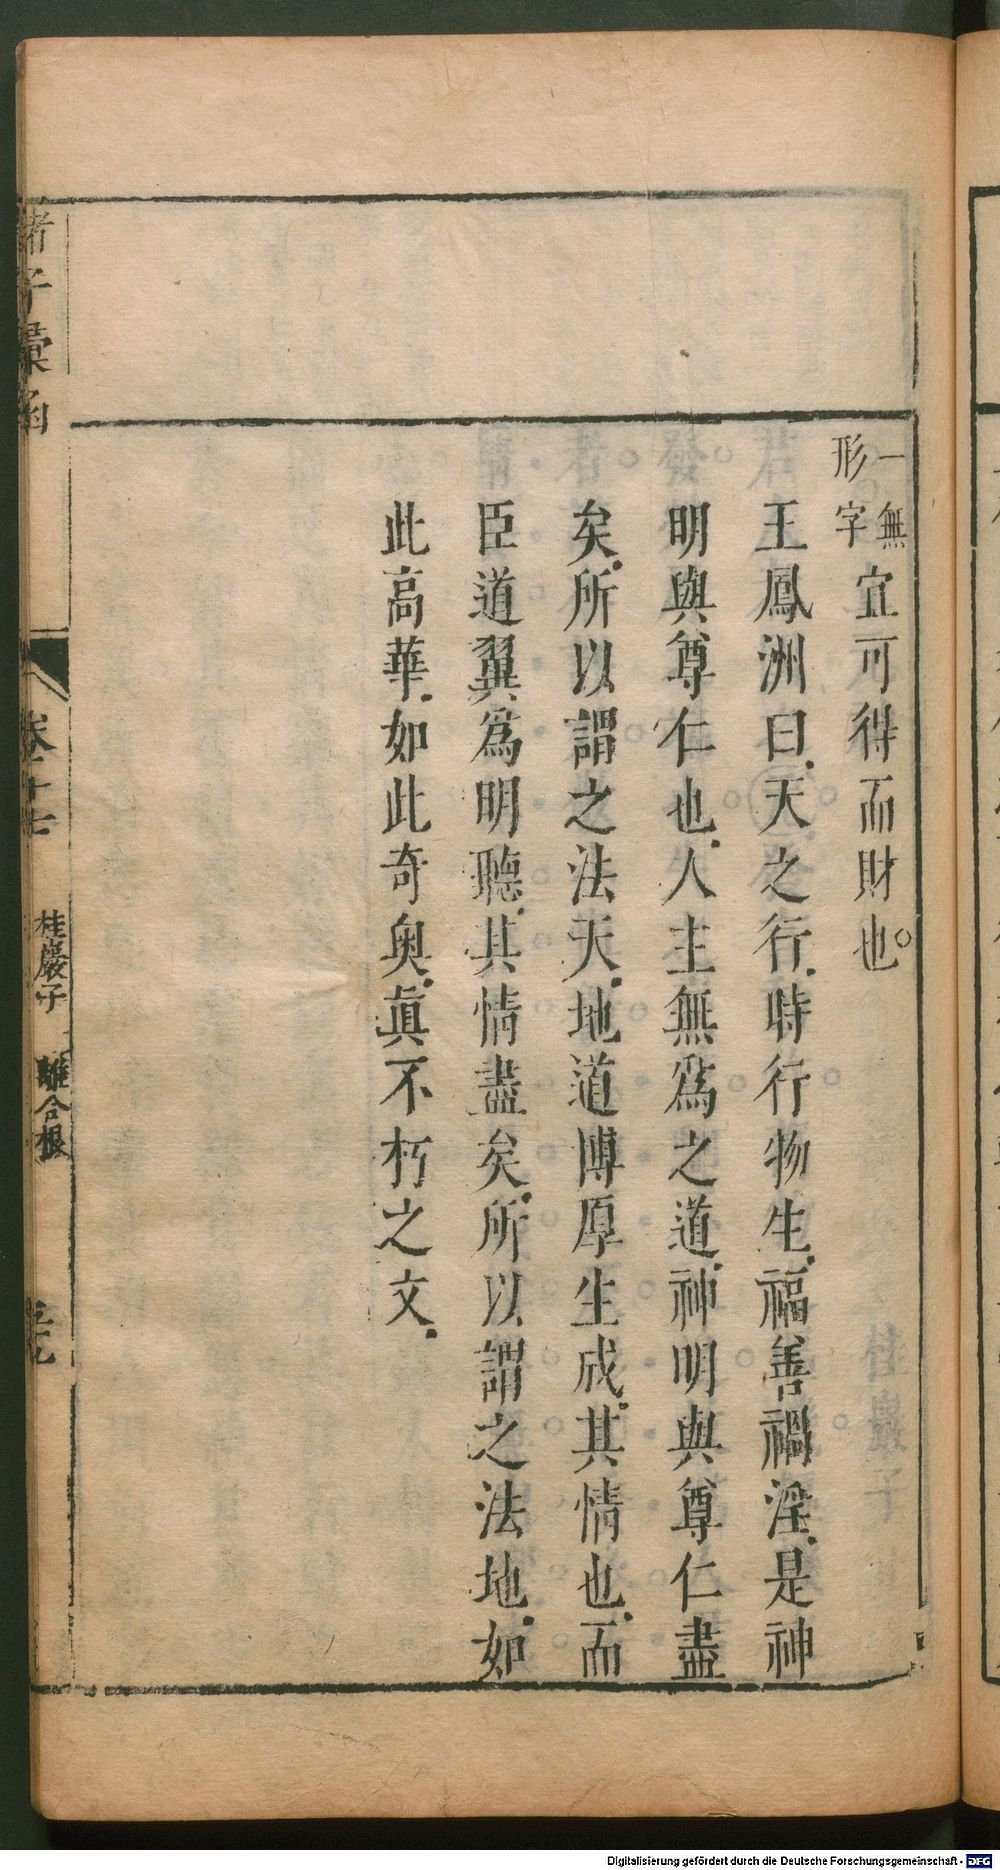 一無
形字
宜可得而財也
王鳳洲曰天之行時行物生福善禍淫是神
明與尊仁也人主無爲之道神明與尊仁盡
矣所以謂之法天地道博厚生成其情也而
臣道翼爲明聽其情盡矣所以謂之法地如
此高華如此奇奧眞不朽之文
諸子彙函
卷十七
桂巖子
離合根
Digitalisierung gefördert durch die Deutsche Forschungsgemeinschaft - DFG